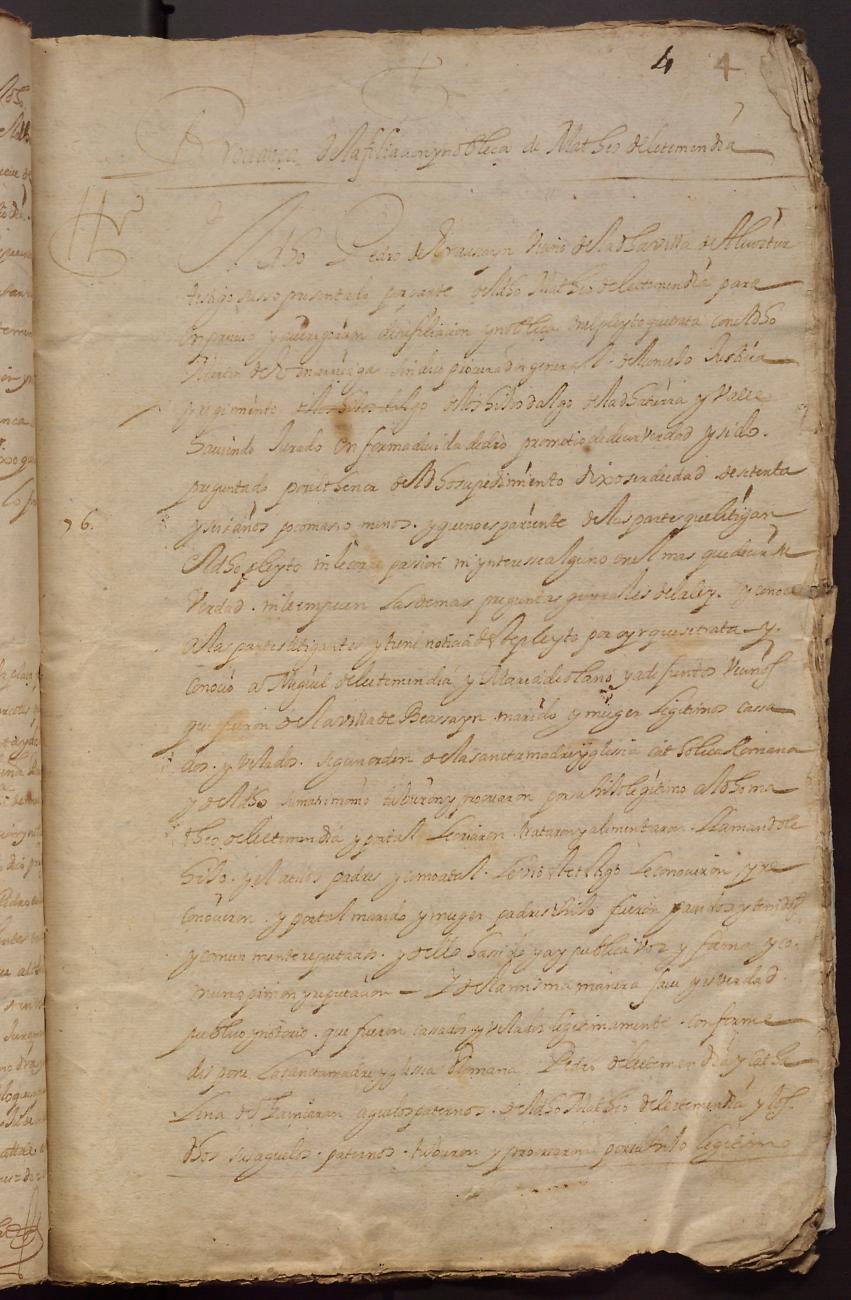 4 4
Provança de la filiacion y nobleça de Matheo de Lectemendia
El dho Pedro de vecino de la dha villa de
testigo susso presentado por parte del dho Matheo de Lectemendia para
y averigoaçion de su filiacion y nobleça en el pleyto que trata con el dho
de sindico procurador general del concejo Justicia
y regimiento de los hijos dalgo de la dha tierra y valle
haviendo jurado en forma devida de dro prometio de decir verdad y siendo
preguntado por el thenor del dho su pedimiento dixo ser de edad de setenta
76.
y seis años poco mas o menos. y que no es pariente de las partes que litigan
el dho pleyto ni le corre passion ni ynteresse alguno en el mas que decir la
verdad. ni le empecen las demas preguntas generales de la ley. y conoce
a las partes litigantes y tiene noticia deste pleyto por oyr que se trata y
conocio a Miguel de Lectemendia y Maria de Olano ya defuntos vecinos
que fueron de la villa de Beassayn marido y muger legitimos cassa
dos. y velados. segun orden de la sancta madre yglesia catholica Romana
y del dho su matrimonio tubieron y procrearon por su hijo legitimo al dho ma
theo de Lectemendia y por tal le criaron trataron y alimentaron. llamandole
hijo. y el a ellos padres y como a tal. le vio este testigo le conocieron y re
conocieron. y por tal marido y muger padres e hijo fueron havidos y tenidos
y comun mente reputados. y dello ha sido y ay publica voz y fama y co
mun opinion y reputacion — Y de la misma manera fue y es verdad
publico y notorio. que fueron cassados y velados legitimamente. conforme
dispone la sancta madre yglesia Romana Pedro de Lectemendia y Cathe
lina de aguelos paternos. del dho Matheo de Lectemendia y los
dhos sus aguelos. paternos. tubieron y procrearon por su hijo legitimo